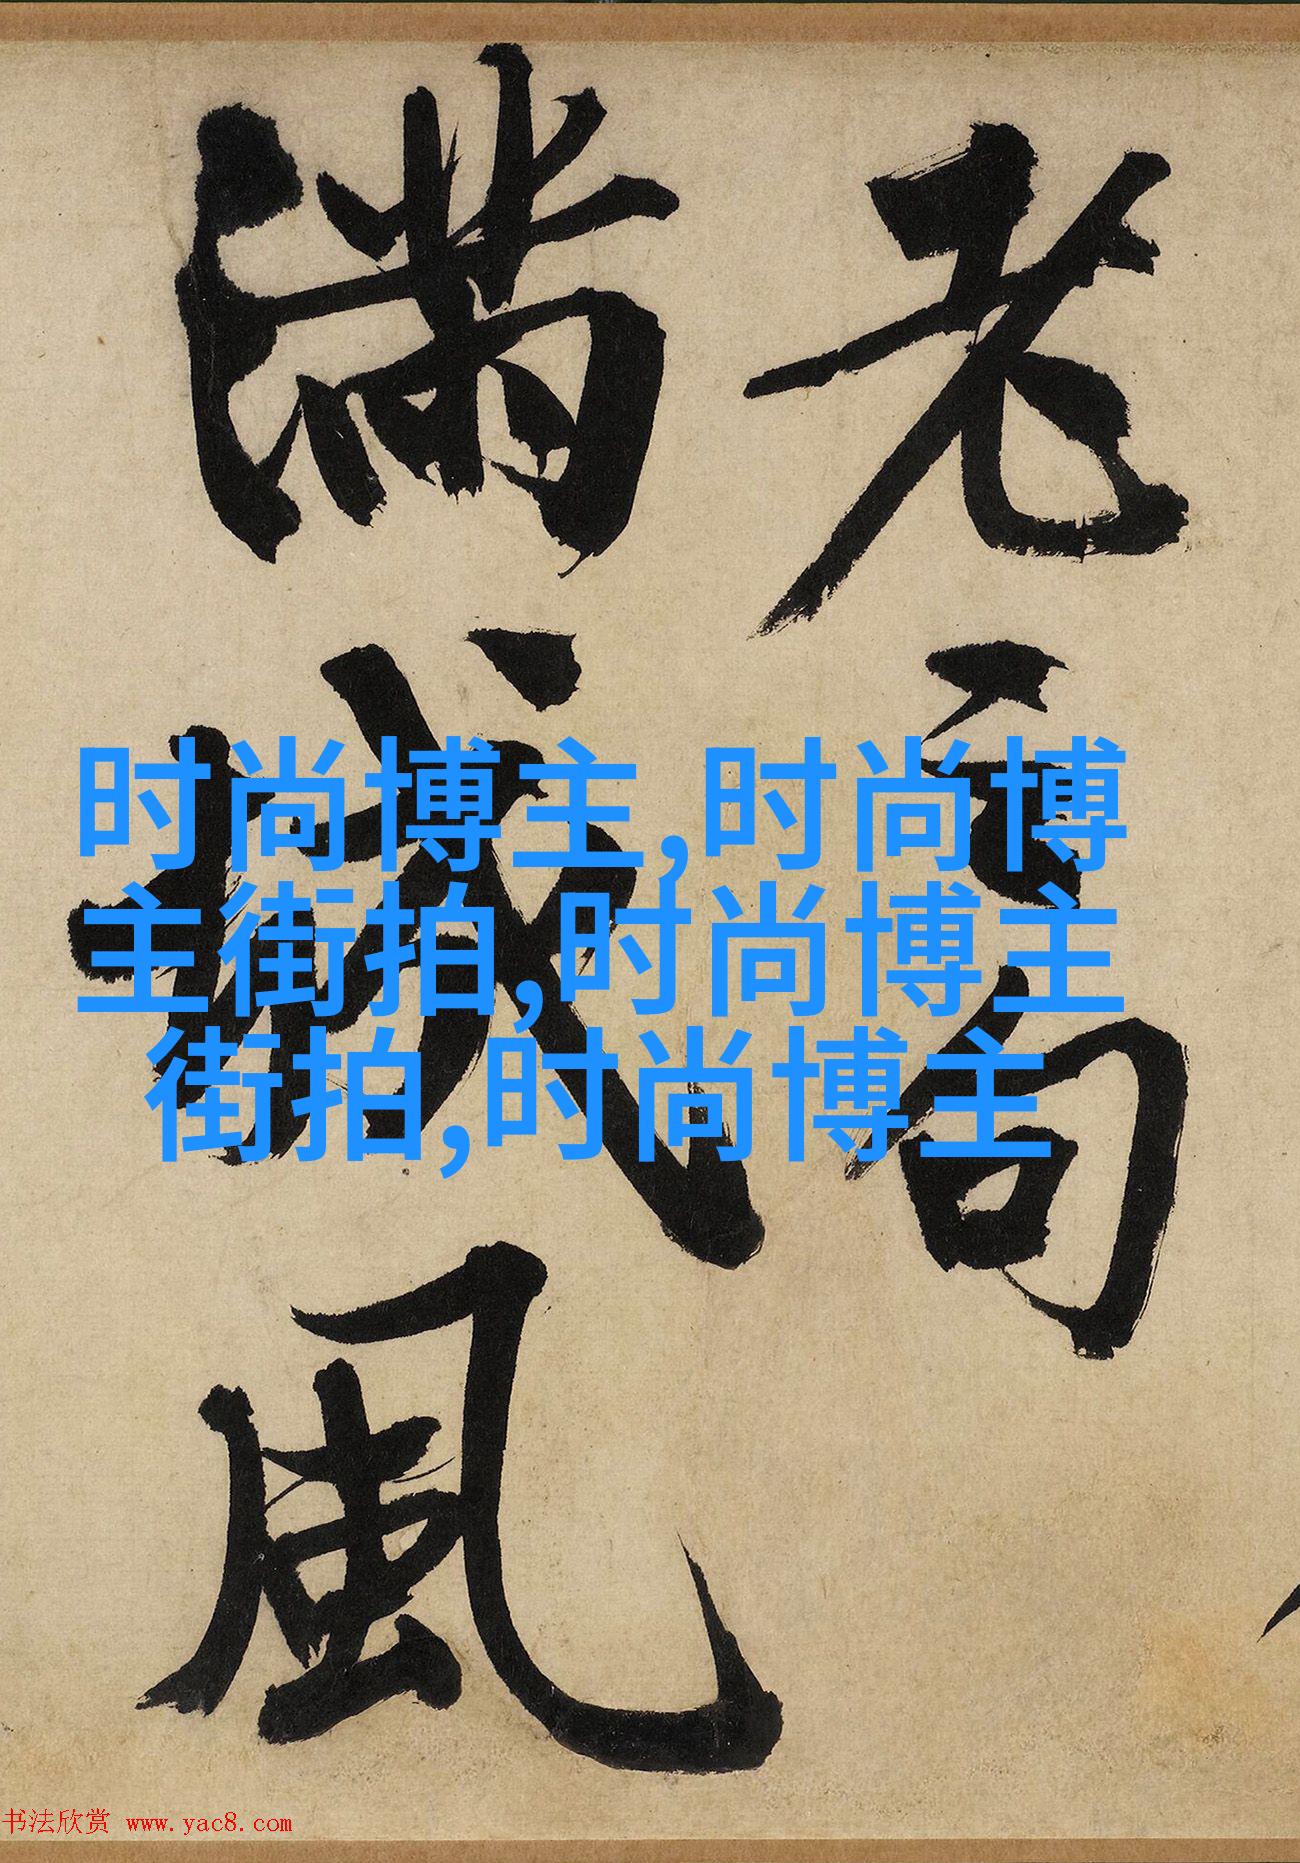 老句
滿城風
时尚博主,时尚博
主街拍,时尚博主
街拍,时尚博主
书法欣赏 www.yac8.com